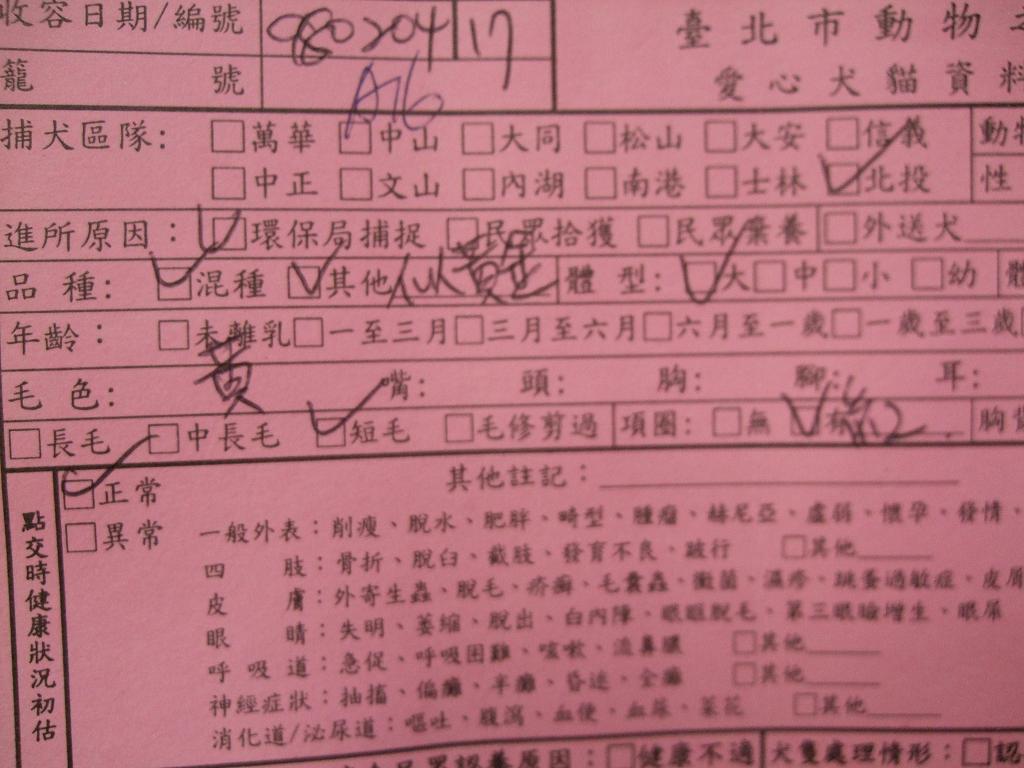 收容日期/編號 080204 17
臺北市動物
籠號 A76
愛心犬貓資料
捕犬區隊: □萬華 □中山 □大同 □松山 □大安 □信義 動物
□中正 □文山 □內湖 □南港 □士林 ☑北投 性
進所原因: ☑環保局捕捉 □民眾拾獲 □民眾棄養 □外送犬
品種: ☑混種 ☑其他 似黃 體型: ☑大 □中 □小 □幼 體
年齡: □未離乳 □一至三月 □三月至六月 □六月至一歲 □一歲至三歲
毛色: 黃 嘴: 頭: 胸: 腳: 耳:
□長毛 □中長毛 ☑短毛 □毛修剪過 項圈: □無 ☑有 紅 胸背
點交時健康狀況初估
☑正常 其他註記:
□異常 一般外表:削瘦、脫水、肥胖、畸型、腫瘤、赫尼亞、虛弱、懷孕、發情、
四肢:骨折、脫臼、截肢、發育不良、跛行 □其他
皮膚:外寄生蟲、脫毛、疥癬、毛囊蟲、黴菌、濕疹、跳蚤過敏症、皮屑
眼睛:失明、萎縮、脫出、白內障、眼眶脫毛、第三眼瞼增生、眼屎
呼吸道:急促、呼吸困難、咳嗽、流鼻膿 □其他
神經症狀:抽搐、偏癱、半癱、昏迷、全癱 □其他
消化道/泌尿道:嘔吐、腹瀉、血便、血尿、菜花 □其他
民眾認養原因:□健康不適 犬隻處理情形:□認